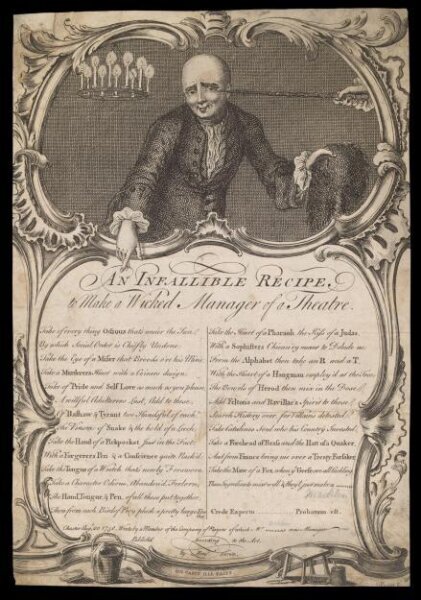 AN INFALLIBLE RECIPE,
to Make a Wicked Manager of a Theatre.
Take of every thing Odious thats under the Sun,
By which Social Order is Chiefly Undone
Take the Eye of a Miser that Broods o'er his
Take a Murderers Heart with a Coiners design
Take of Pride and Self Love as much as you please
A willful Adulterers Lust, Add to these.
Of Bashaw & Tyrant two Handfuls of each
The Venom of Snake & the hold of a Leech
Take the Hand of a Pickpocket Just in the Fact
With a Forgerers Pen & a Conscience quite Rack'd
Take the Tongue of a Wretch that's newly Forsworn
Take a Character Odious, Abandon'd, Forlorn
The Hand, Tongue, & Pen, of all these put together
Then from each Bird of Prey pluck a pretty large
Take the Heart of a Pharaoh, the Kiss of a Judas,
With a Sophisters Chican'ry meant to Delude us
From the Alphabet then take an R and a T
With the Heart of a Hangman employ'd at the
The Bowels of Herod then mix in the Dose
Add Feltons and Ravillac's Spirit to those
Search History over, for Villains detested
Take Catalines Soul who his Country Infested
Take a Forehead of Brass and the Hat of a Quaker,
And from France bring me over a Treaty Forsaker
Take the Maw of a Fox, when of Geese
These Ingredients mix well
Crede Experto Probatum est.
Chester Aug. 20 Wrote by a Member of the Company of Players of which Mr. was Manager
Published according to the Act.
By